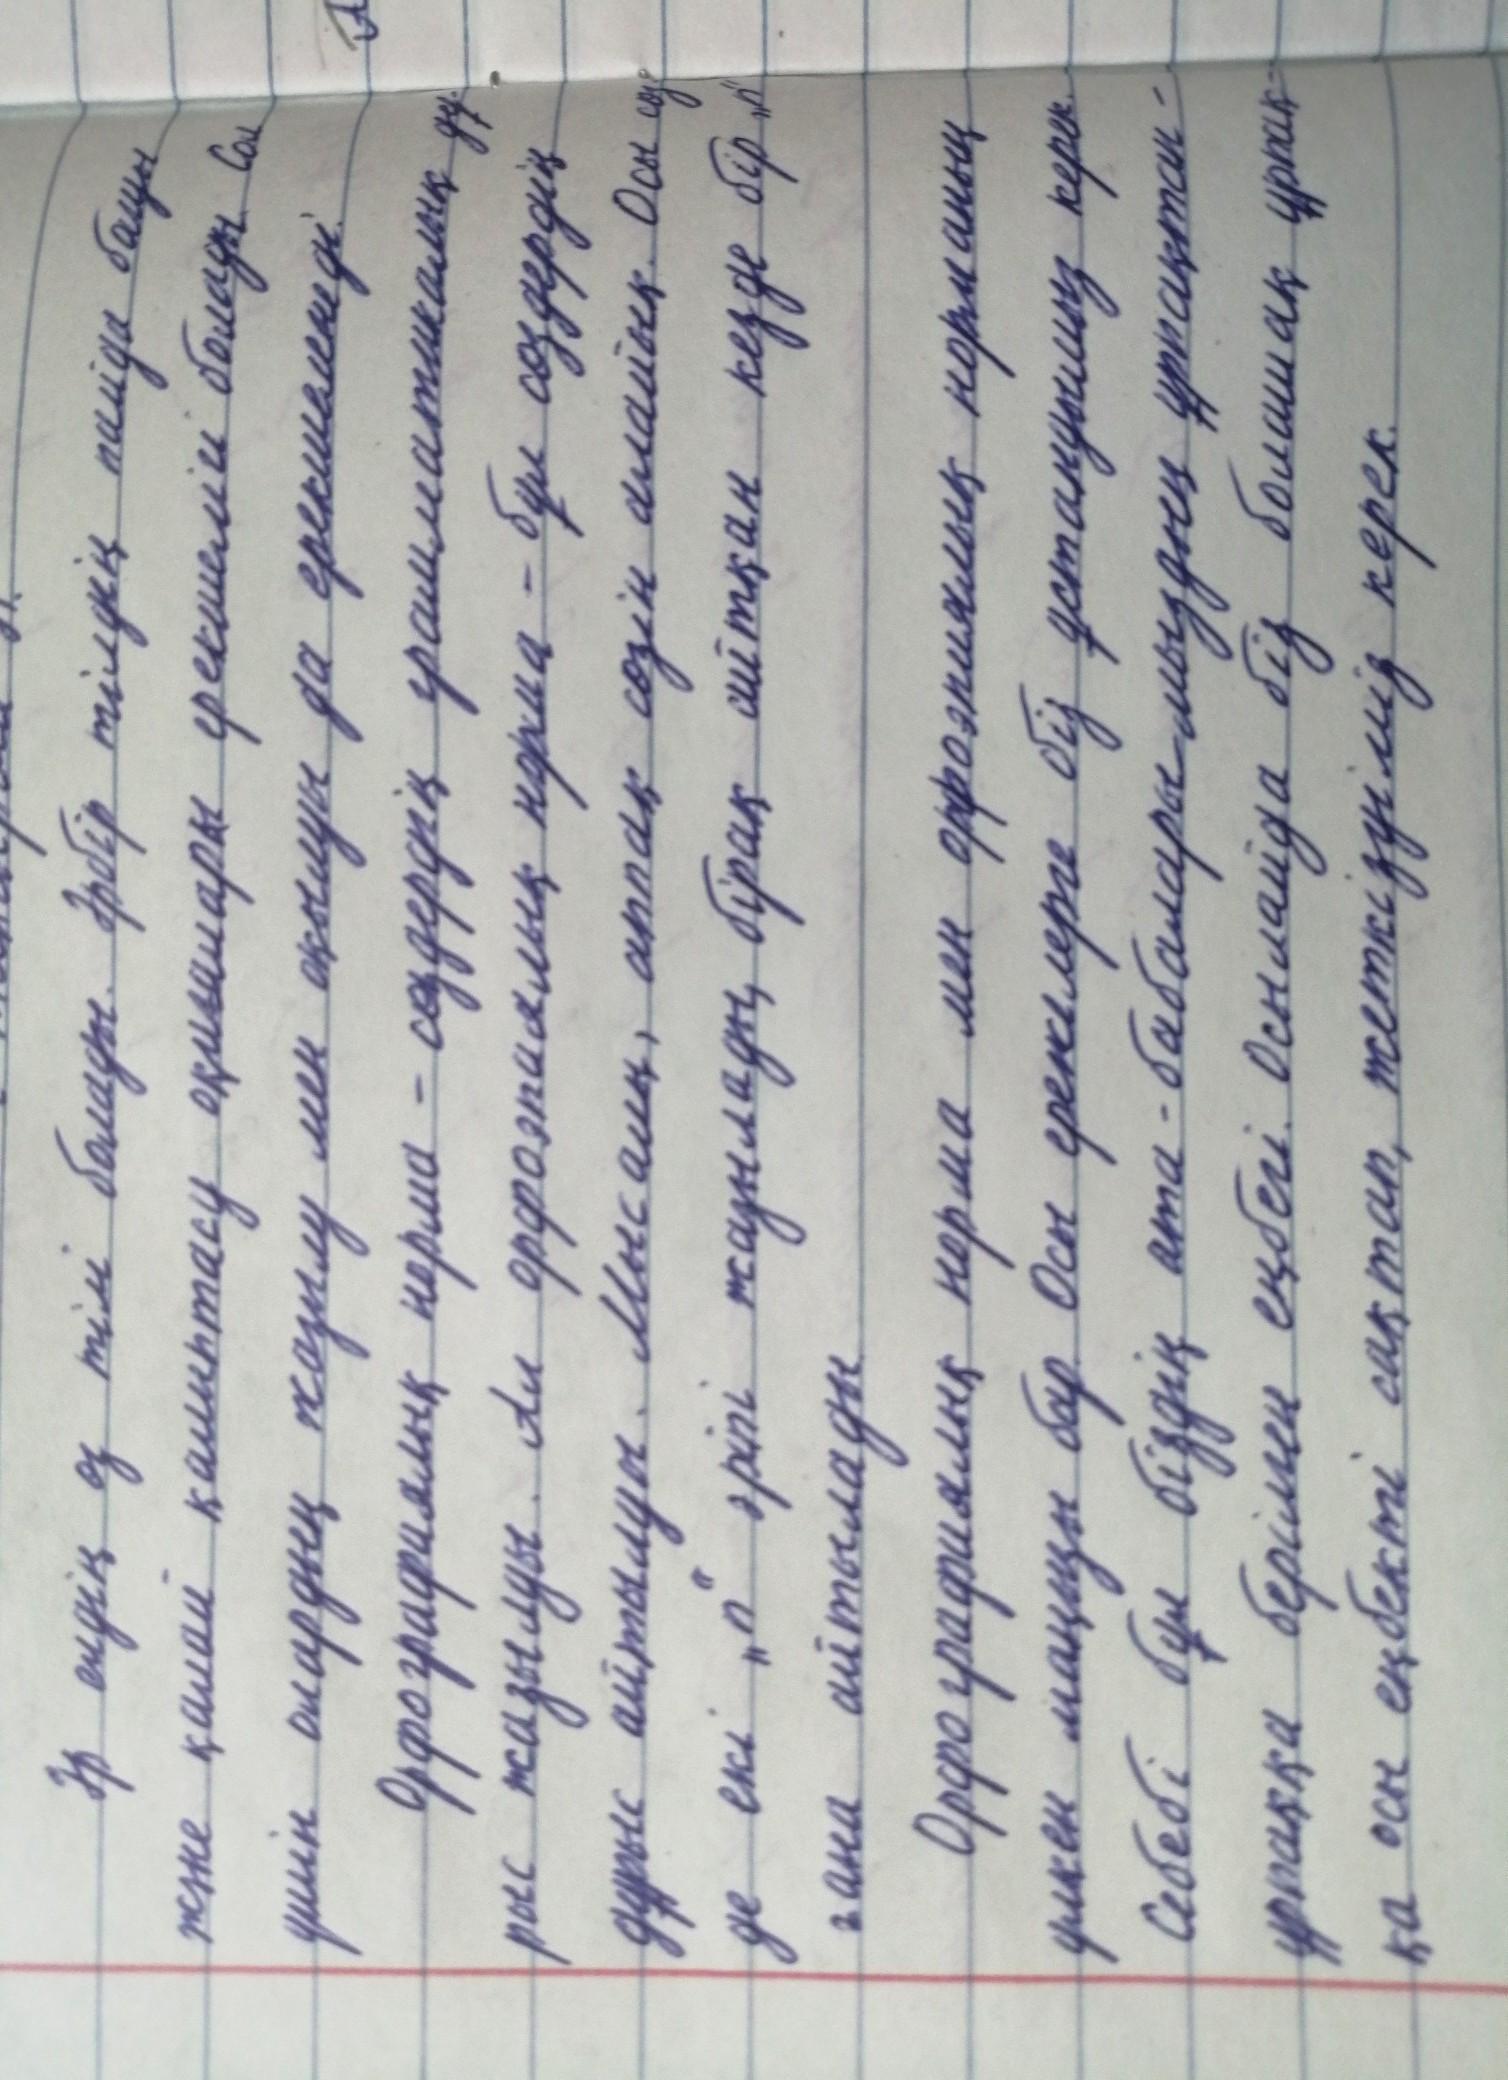 Әр елдің өз тілі болады. Әрбір тілдің пайда болуы
және қалай қалыптасу оқиғалары ерекшелігі болады. Сол
үшін олардың жазылу мен оқылуы да ерекшеленеді.
Орфографиялық норма - сөздердің грамматикалық ду-
рыс жазылуы. Ал орфоэпиялық норма - бұл сөздердің
дұрыс айтылуы. Мысалы, аппақ сөзін алайық. Осы сөз-
де екі „п" әріпі жазылады, бірақ айтқан кезде бір „п"
ғана айтылады
Орфографиялық норма мен орфоэпиялық норманың
үлкен маңызы бар. Осы ережелерге біз ұстануымыз керек.
Себебі бұл біздің ата-бабалары-мыздың ұрпақтан-
ұрпаққа берілген еңбегі. Осылайда біз болашақ ұрпақ-
қа осы еңбекті сақтап, жеткізуіміз керек.